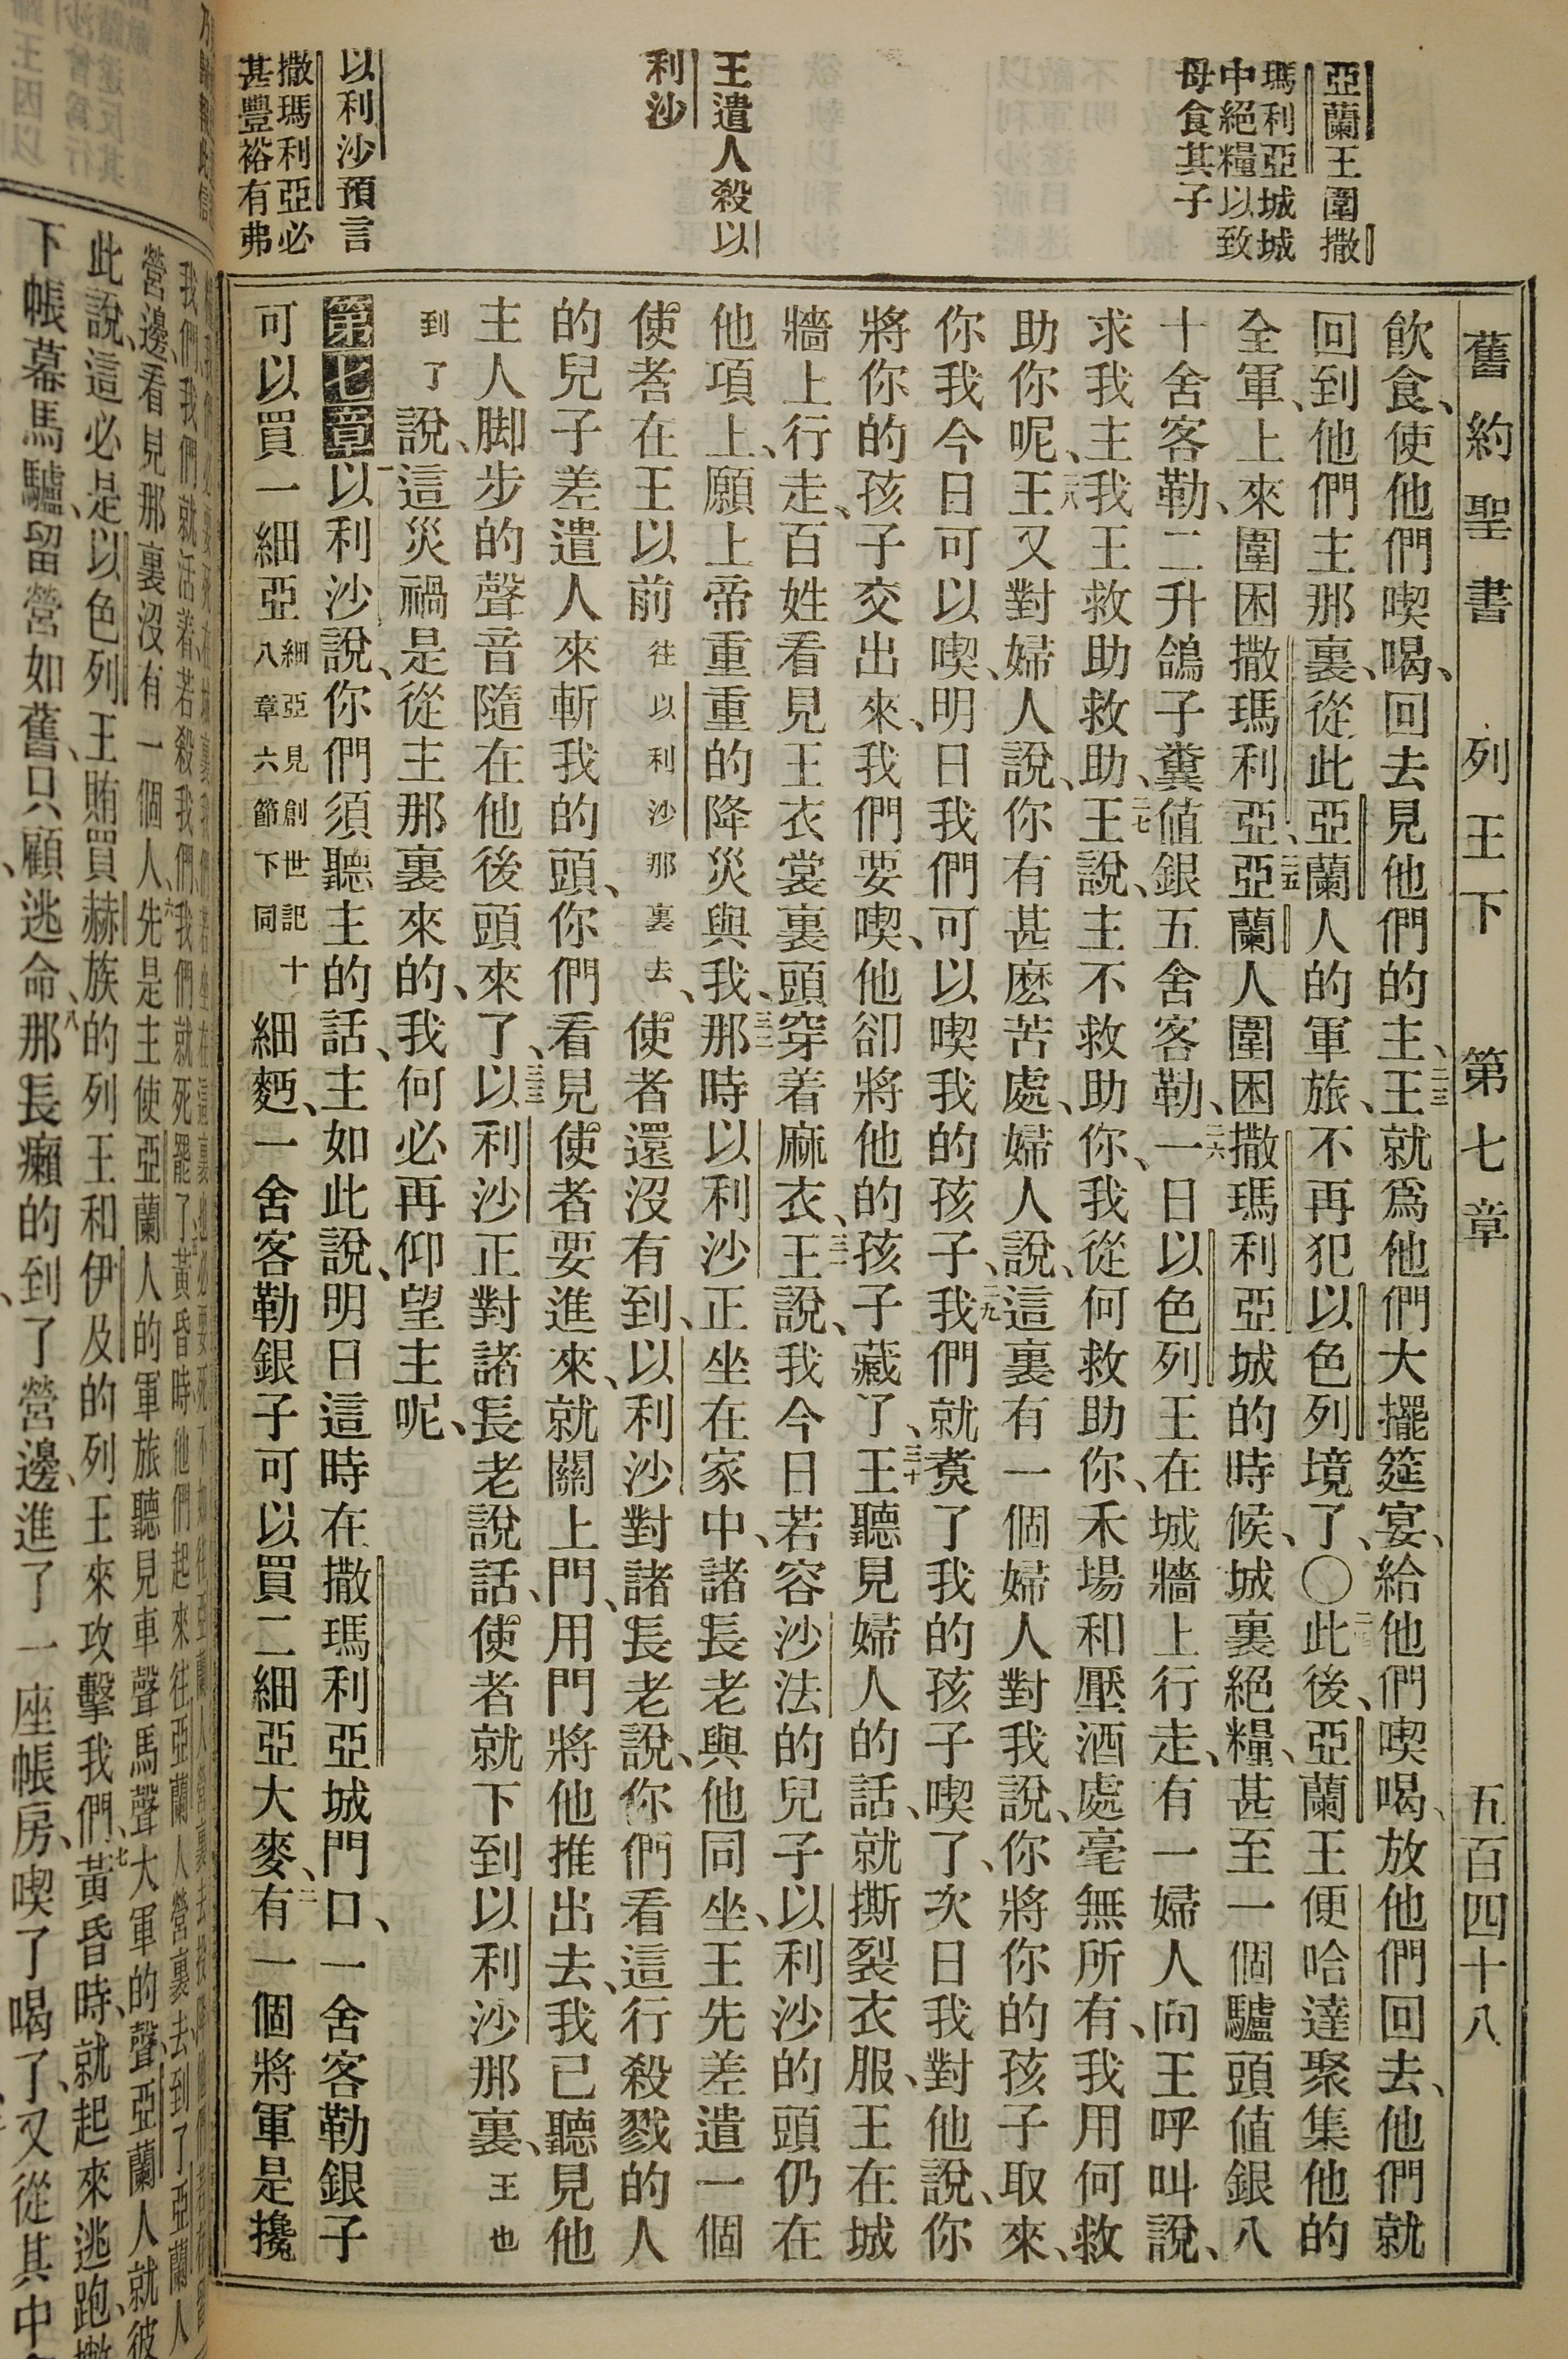 舊約聖書 列王下 第七章 五百四十八
亞蘭王圍撒
瑪利亞城城
中絕糧以致
母食其子
王遣人殺以
利沙
以利沙預言
撒瑪利亞必
甚豐裕有弗
飲食、使他們喫喝、回去見他們的主、二三王就爲他們大擺筵宴、給他們喫喝、放他們回去、他們就
回到他們主那裏、從此亞蘭人的軍旅、不再犯以色列境了、〇二四此後、亞蘭王便哈達聚集他的
全軍、上來圍困撒瑪利亞、二五亞蘭人圍困撒瑪利亞城的時候、城裏絕糧、甚至一個驢頭値銀八
十舍客勒、二升鴿子糞値銀五舍客勒、二六一日以色列王在城牆上行走、有一婦人向王呼叫說、
求我主我王救助救助、二七王說、主不救助你、我從何救助你、禾場和壓酒處毫無所有、我用何救
助你呢、二八王又對婦人說、你有甚麽苦處、婦人說、這裏有一個婦人對我說、你將你的孩子取來、
你我今日可以喫、明日我們可以喫我的孩子、二九我們就煑了我的孩子喫了、次日我對他說、你
將你的孩子交出來、我們要喫、他卻將他的孩子藏了、三十王聽見婦人的話、就撕裂衣服、王在城
牆上行走、百姓看見王衣裳裏頭穿着麻衣、三一王說、我今日若容沙法的兒子以利沙的頭仍在
他項上、願上帝重重的降災與我、三二那時以利沙正坐在家中、諸長老與他同坐、王先差遣一個
使者在王以前往以利沙那裏去、使者還沒有到、以利沙對諸長老說、你們看這行殺戮的人
的兒子差遣人來斬我的頭、你們看見使者要進來、就關上門、用門將他推出去、我已聽見他
主人脚步的聲音隨在他後頭來了、三三以利沙正對諸長老說話、使者就下到以利沙那裏、王也
到了說、這災禍是從主那裏來的、我何必再仰望主呢、
第七章一以利沙說、你們須聽主的話、主如此說、明日這時在撒瑪利亞城門口、一舍客勒銀子
可以買一細亞細亞見創世記十八章六節下同細麪、一舍客勒銀子可以買二細亞大麥、二有一個將軍是攙
營邊、看見那裏沒有一個人、六先是主使亞蘭人的軍旅聽見車聲馬聲大軍的聲、亞蘭人就彼
此說、這必是以色列王賄買赫族的列王和伊及的列王來攻擊我們、七黃昏時、就起來逃跑、
下帳幕馬驢、留營如舊、只顧逃命、八那長癩的到了營邊、進了一座帳房、喫了喝了、又從其中